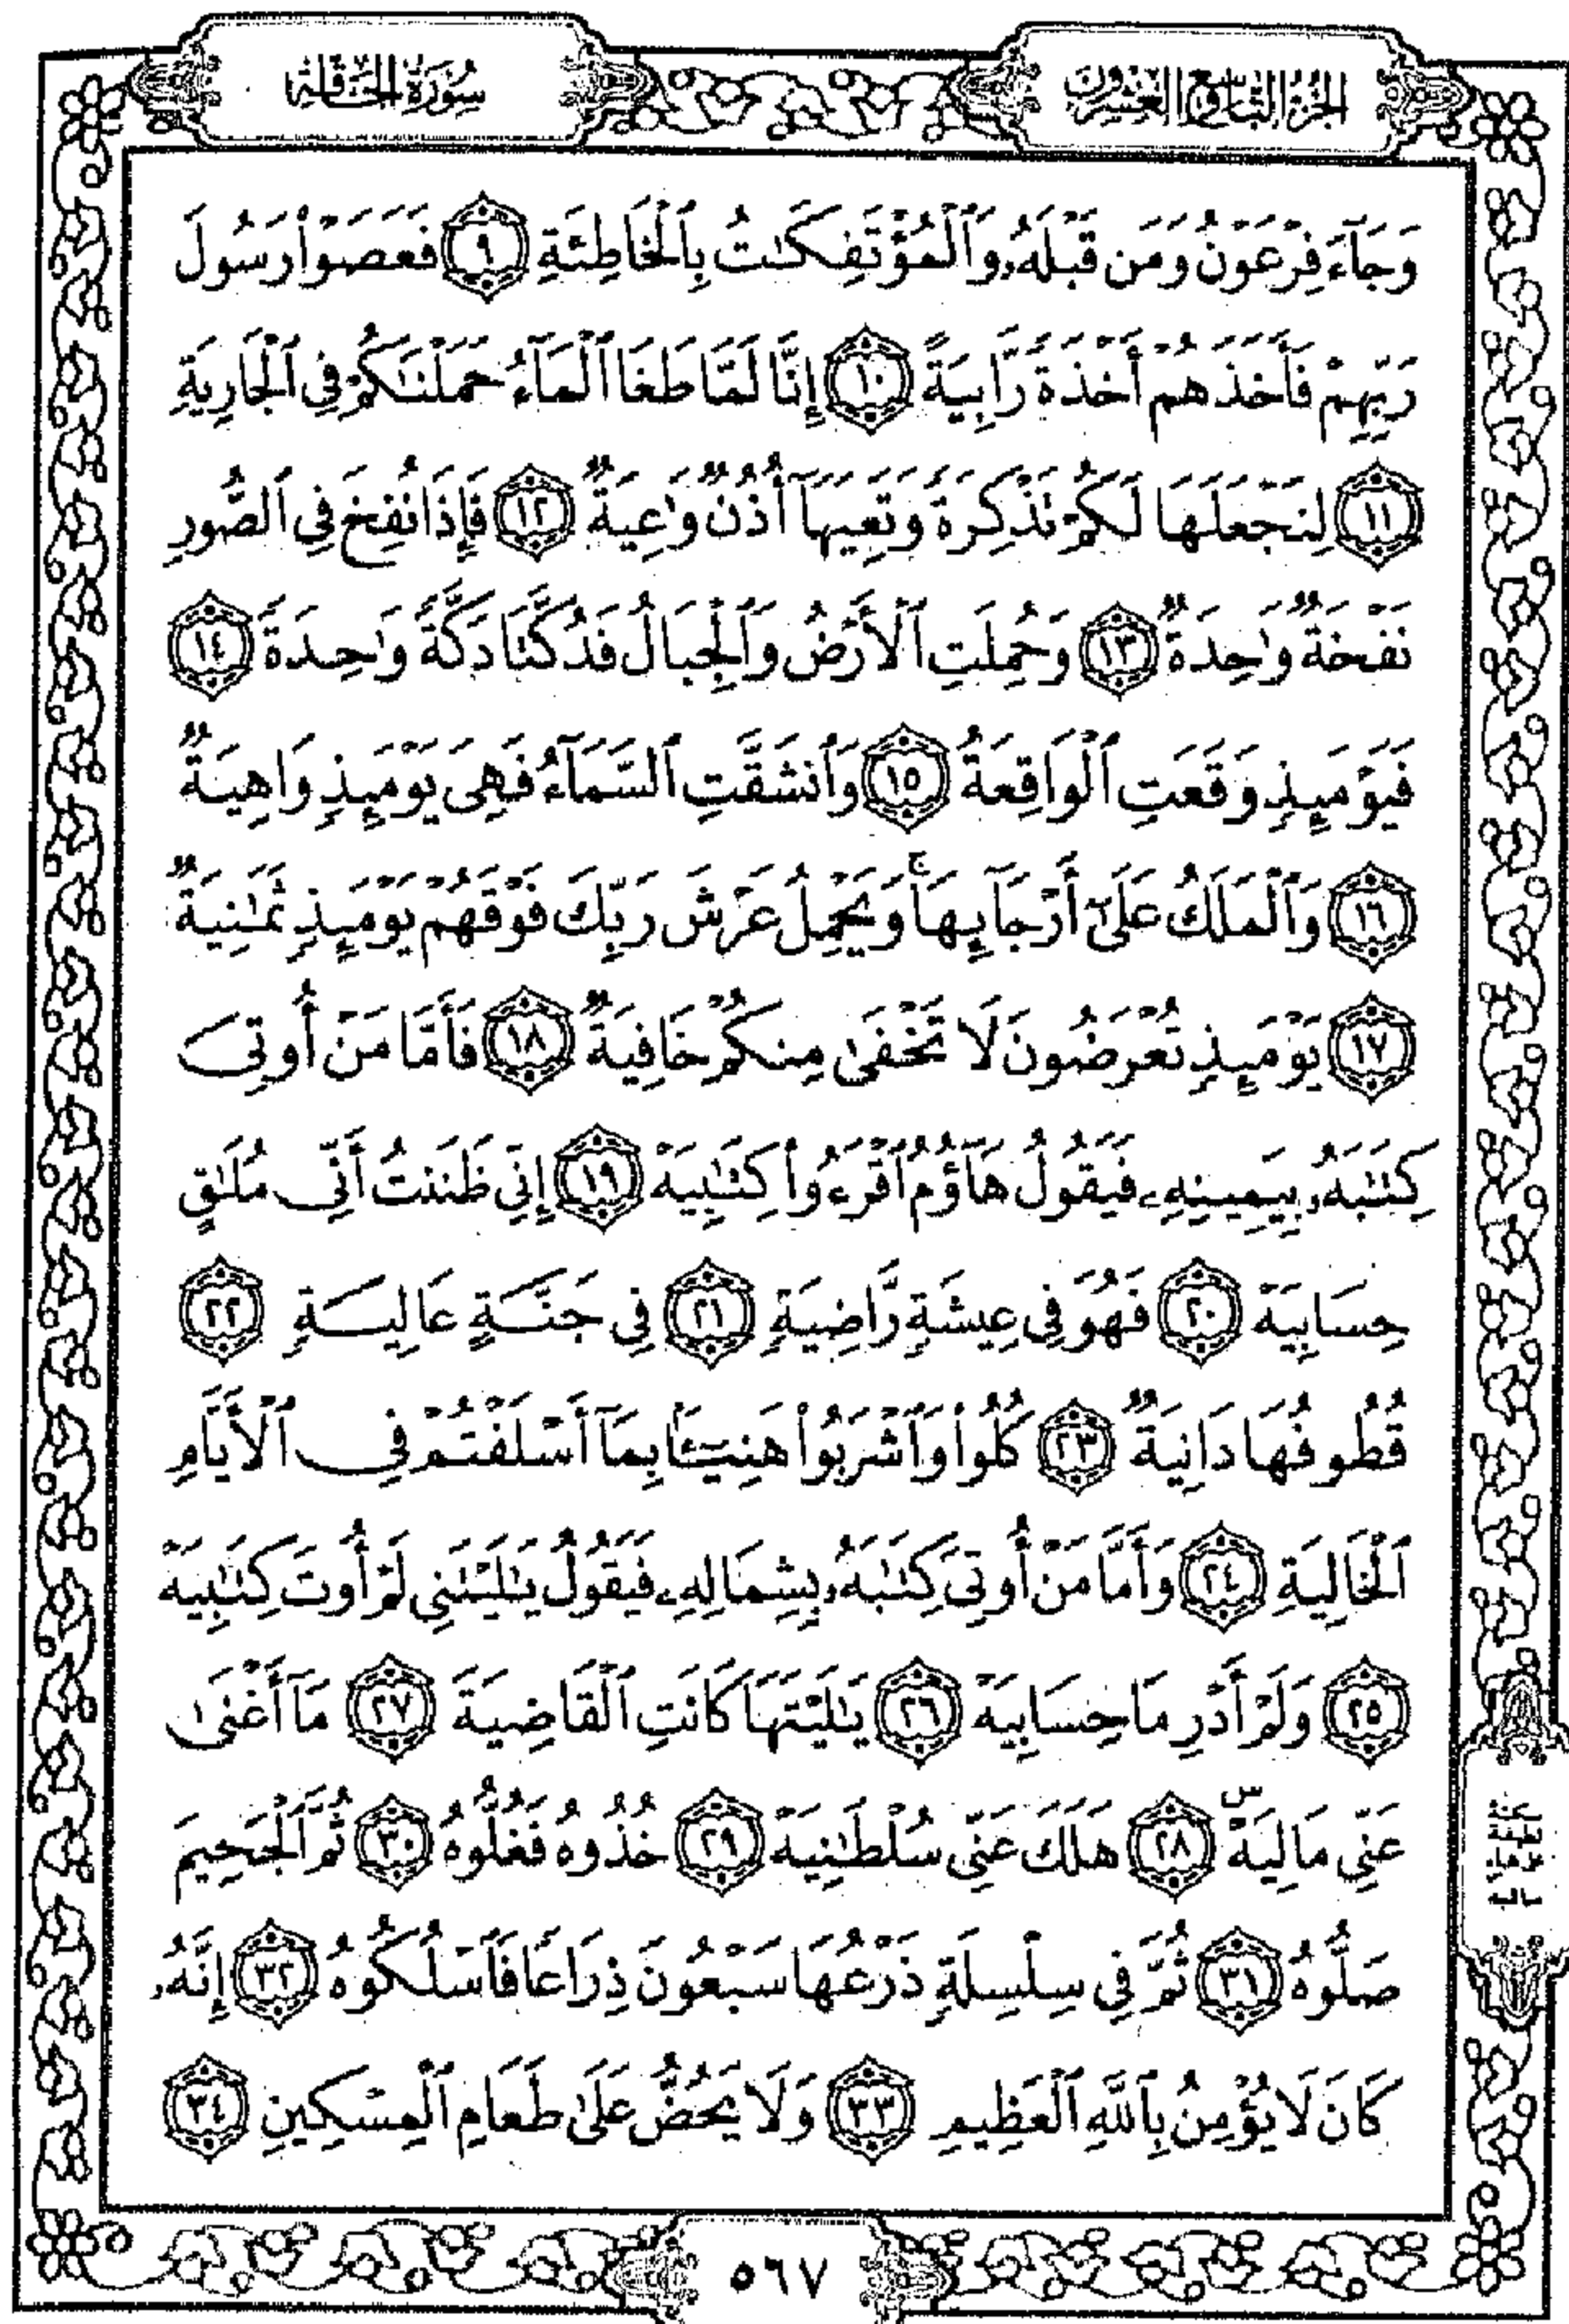 الجزء التاسع والعشرون
سُورَةُ الحَاقَّةِ
وَجَآءَ فِرْعَوْنُ وَمَن قَبْلَهُۥ وَٱلْمُؤْتَفِكَـٰتُ بِٱلْخَاطِئَةِ ٩ فَعَصَوْا۟ رَسُولَ
رَبِّهِمْ فَأَخَذَهُمْ أَخْذَةً رَّابِيَةً ١٠ إِنَّا لَمَّا طَغَا ٱلْمَآءُ حَمَلْنَـٰكُمْ فِى ٱلْجَارِيَةِ
١١ لِنَجْعَلَهَا لَكُمْ تَذْكِرَةً وَتَعِيَهَآ أُذُنٌ وَٰعِيَةٌ ١٢ فَإِذَا نُفِخَ فِى ٱلصُّورِ
نَفْخَةٌ وَٰحِدَةٌ ١٣ وَحُمِلَتِ ٱلْأَرْضُ وَٱلْجِبَالُ فَدُكَّتَا دَكَّةً وَٰحِدَةً ١٤
فَيَوْمَئِذٍ وَقَعَتِ ٱلْوَاقِعَةُ ١٥ وَٱنشَقَّتِ ٱلسَّمَآءُ فَهِىَ يَوْمَئِذٍ وَاهِيَةٌ
١٦ وَٱلْمَلَكُ عَلَىٰٓ أَرْجَآئِهَا ۚ وَيَحْمِلُ عَرْشَ رَبِّكَ فَوْقَهُمْ يَوْمَئِذٍ ثَمَـٰنِيَةٌ
١٧ يَوْمَئِذٍ تُعْرَضُونَ لَا تَخْفَىٰ مِنكُمْ خَافِيَةٌ ١٨ فَأَمَّا مَنْ أُوتِىَ
كِتَـٰبَهُۥ بِيَمِينِهِۦ فَيَقُولُ هَآؤُمُ ٱقْرَءُوا۟ كِتَـٰبِيَهْ ١٩ إِنِّى ظَنَنتُ أَنِّى مُلَـٰقٍ
حِسَابِيَهْ ٢٠ فَهُوَ فِى عِيشَةٍ رَّاضِيَةٍ ٢١ فِى جَنَّةٍ عَالِيَةٍ ٢٢
قُطُوفُهَا دَانِيَةٌ ٢٣ كُلُوا۟ وَٱشْرَبُوا۟ هَنِيٓـًٔۢا بِمَآ أَسْلَفْتُمْ فِى ٱلْأَيَّامِ
ٱلْخَالِيَةِ ٢٤ وَأَمَّا مَنْ أُوتِىَ كِتَـٰبَهُۥ بِشِمَالِهِۦ فَيَقُولُ يَـٰلَيْتَنِى لَمْ أُوتَ كِتَـٰبِيَهْ
٢٥ وَلَمْ أَدْرِ مَا حِسَابِيَهْ ٢٦ يَـٰلَيْتَهَا كَانَتِ ٱلْقَاضِيَةَ ٢٧ مَآ أَغْنَىٰ
عَنِّى مَالِيَهْ ۜ ٢٨ هَلَكَ عَنِّى سُلْطَـٰنِيَهْ ٢٩ خُذُوهُ فَغُلُّوهُ ٣٠ ثُمَّ ٱلْجَحِيمَ
صَلُّوهُ ٣١ ثُمَّ فِى سِلْسِلَةٍ ذَرْعُهَا سَبْعُونَ ذِرَاعًا فَٱسْلُكُوهُ ٣٢ إِنَّهُۥ
كَانَ لَا يُؤْمِنُ بِٱللَّهِ ٱلْعَظِيمِ ٣٣ وَلَا يَحُضُّ عَلَىٰ طَعَامِ ٱلْمِسْكِينِ ٣٤
٥٦٧